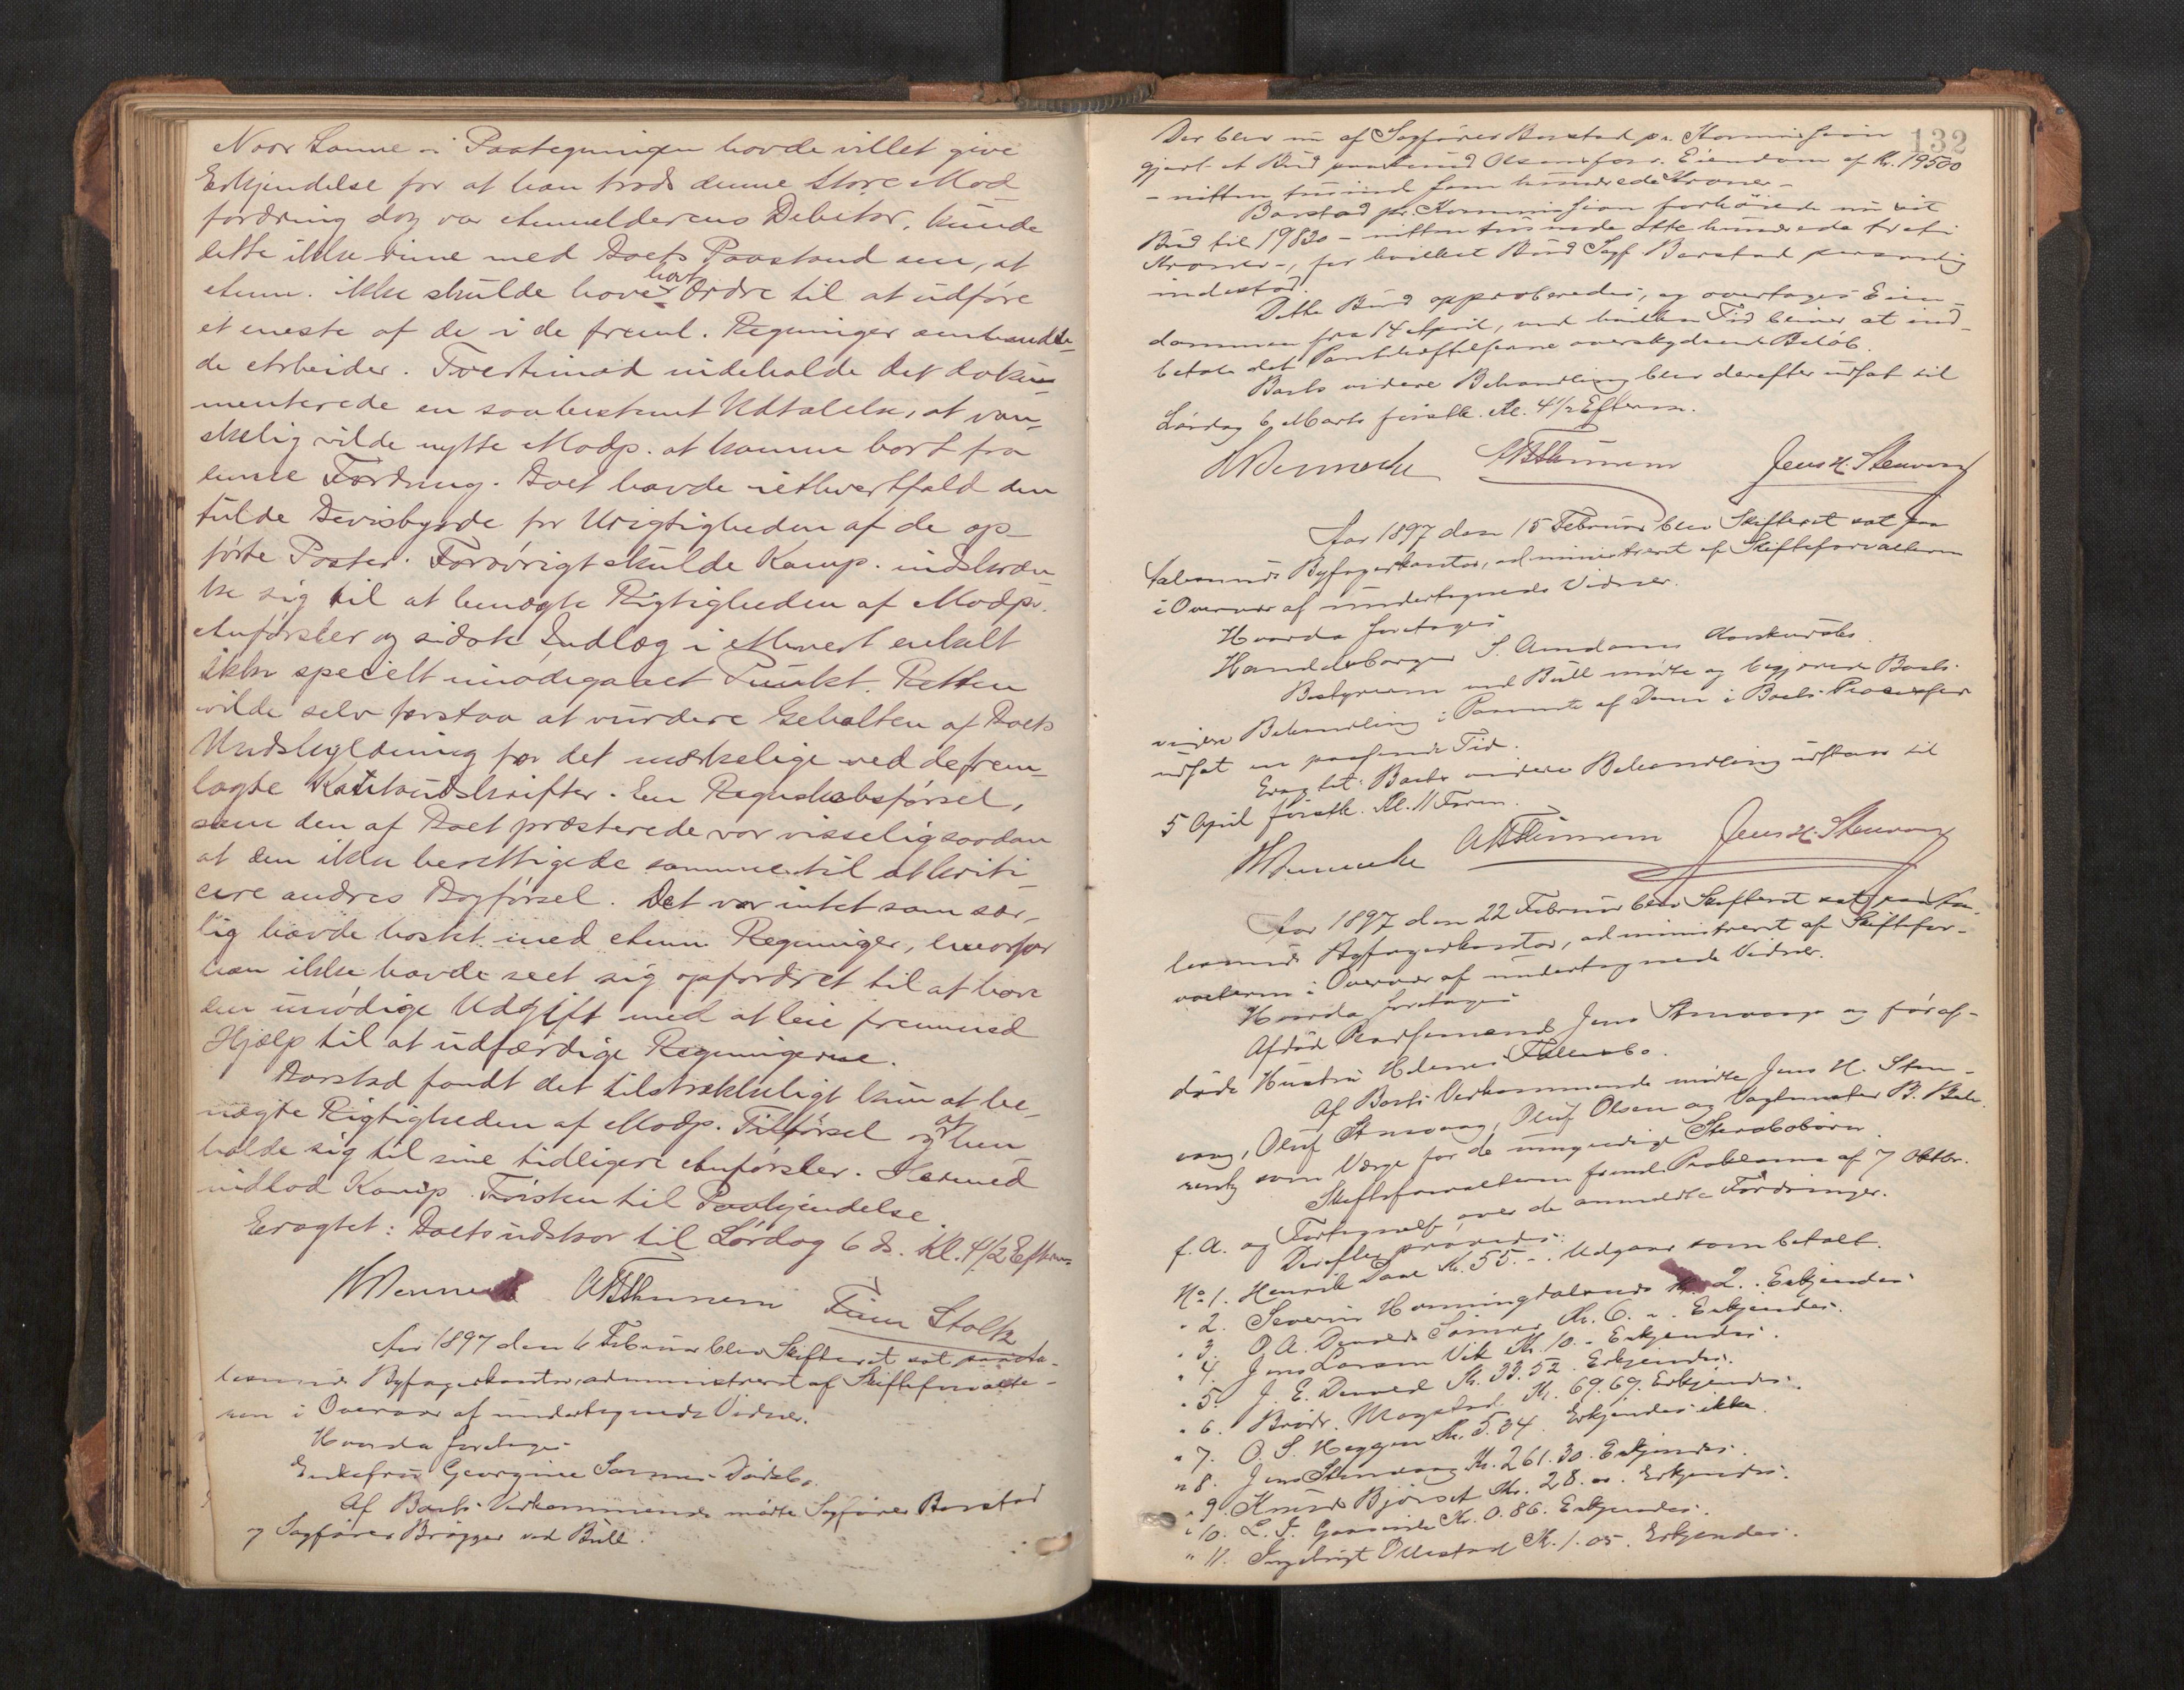 Naar Sanne i Paategningen havde villet give
Erkjendelse for at han trods denne store Mod
fordring dog var Anmelderens Debitor, kunde
dette ikke rime med Boets Paastand om, at
Anm. ikke skulde have havt Ordre til at udføre
et eneste af de i de freml. Regninger omhandle-
de Arbeider. Tvertimod indeholde det doku-
menterede en saa bestemt Udtalelse, at van-
skelig vilde nytte Modp. at komme bort fra
denne Fordring. Boet havde i ethvertfald den
fulde Bevisbyrde for Urigtigheden af de op-
førte Poster. Forøvrigt skulde Komp. indskræn-
ke sig til at benægte Rigtigheden af Modp.
Anførsler og sidste Indlæg i ethvert enkelt
ikke specielt imødegaaet Punkt. Retten
vilde selv forstaa at vurdere Gehalten af Boets
Undskyldning for det mærkelige ved de frem-
lagte Kontoudskrifter. En Regnskabsførsel,
som den af Boet præsterede var visselig saadan
at den ikke berettigede samme til at kriti-
cere andres Bogførsel. Det var intet som sær-
lig havde hastet med Anm. Regninger, hvorfor
han ikke havde seet sig opfordret til at have
den unødige Udgift med at leie fremmed
Hjælp til at udfærdige Regningerne.
Barstad fandt det tilstrækkeligt kun at be-
nægte Rigtigheden af Modp. Tilførsel og at hen-
holde sig til sine tidligere Anførsler. Hermed
indlod Komp. Tvisten til Paakjendelse.
Eragtet: Boet udstaar til Lørdag 6 ds. Kl. 4 1/2 Efterm.
Finn Stolt
Aar 1897 den 6 Februar blev Skifteret sat paa Aa-
lesunds Byfogedkontor, administreret af Skifteforvalte-
ren i Overvær af undertegnede Vidner.
Hvorda foretoges
Enkefru Georgine Sannes Dødsbo.
Af Boets Vedkommende mødte Sagfører Barstad
og Sagfører Brøgger ved Bull.
132
Der blev nu af Sagfører Barstad pr. Kommission
gjort et Bud paa Knud Olsens for v. Eiendom af Kr. 19500
- nitten tusind fem hundrede Kroner -
Barstad pr. Kommission forhøiede nu sit
Bud til 19830 - nitten tusinde otte hundrede treti
Kroner -, for hvilket Bud Sagf. Barstad personlig
indestod.
Dette Bud approberedes, og overtages Eien-
dommen fra 14 April, ved hvilken Tid bliver at ind-
betale det Panthæftelserne overskydende Beløb.
Boets videre Behandling blev derefter udsat til
Lørdag 6 Marts førstk. Kl. 4 1/2 Efterm.
Jens H. Stenvaag
Aar 1897 den 15 Februar blev Skifteret sat paa
Aalesunds Byfogedkontor, administreret af Skifteforvalteren
i Overvær af undertegnede Vidner.
Hvorda foretoges
Handelsborger S. Amdams Konkursbo.
Bestyreren ved Bull mødte og begjærede Boets
videre Behandling i Paavente af Dom i Boets Processer
udsat en passende Tid.
Eragtet: Boets videre Behandling udstaar til
5 April førstk. Kl. 11 Form.
Jens H. Stenvaag
Aar 1897 den 22 Februar blev Skifteret sat paa Aa-
lesunds Byfogedkontor, administreret af Skiftefor-
valteren i Overvær af undertegnede Vidner.
Hvorda foretoges
Afdød Jens Stenvaags og før af-
døde Hustru Helenes Fællesbo.
Af Boets Vedkommende mødte Jens H. Sten-
vaag, Oluf Stenvaag, Oluf Olsen og Vagtmester B.
som Værge for de umyndige Stervbobørn.
Skifteforvalteren freml. Proklama af 7 Oktbr.
f. A. og Fortegnelse over de anmeldte Fordringer.
Derefter prøvedes:
No 1. Henrik Kr. 55.- . Udgaar som betalt.
" 2. Severin Honningdalsnes Kr. 2. . Erkjendes.
" 3. O. A. Devolds Sønner Kr. 6. " . Erkjendes.
" 4. Jens Larsen Vik Kr. 10. - Erkjendes.
" 5. J. E. Devold Kr. 33.52. Erkjendes.
" 6. Brødr. Mogstad Kr. 69.69. Erkjendes.
" 7. O. S. Heggen Kr. 5.04. Erkjendes ikke.
" 8. Jens Stenvaag Kr. 261.30. Erkjendes.
" 9. Knud Bjørset Kr. 28.00. Erkjendes.
" 10. L. J. Kr. 0.86. Erkjendes.
" 11. Ingebrigt Ollestad Kr. 1.05. Erkjendes.